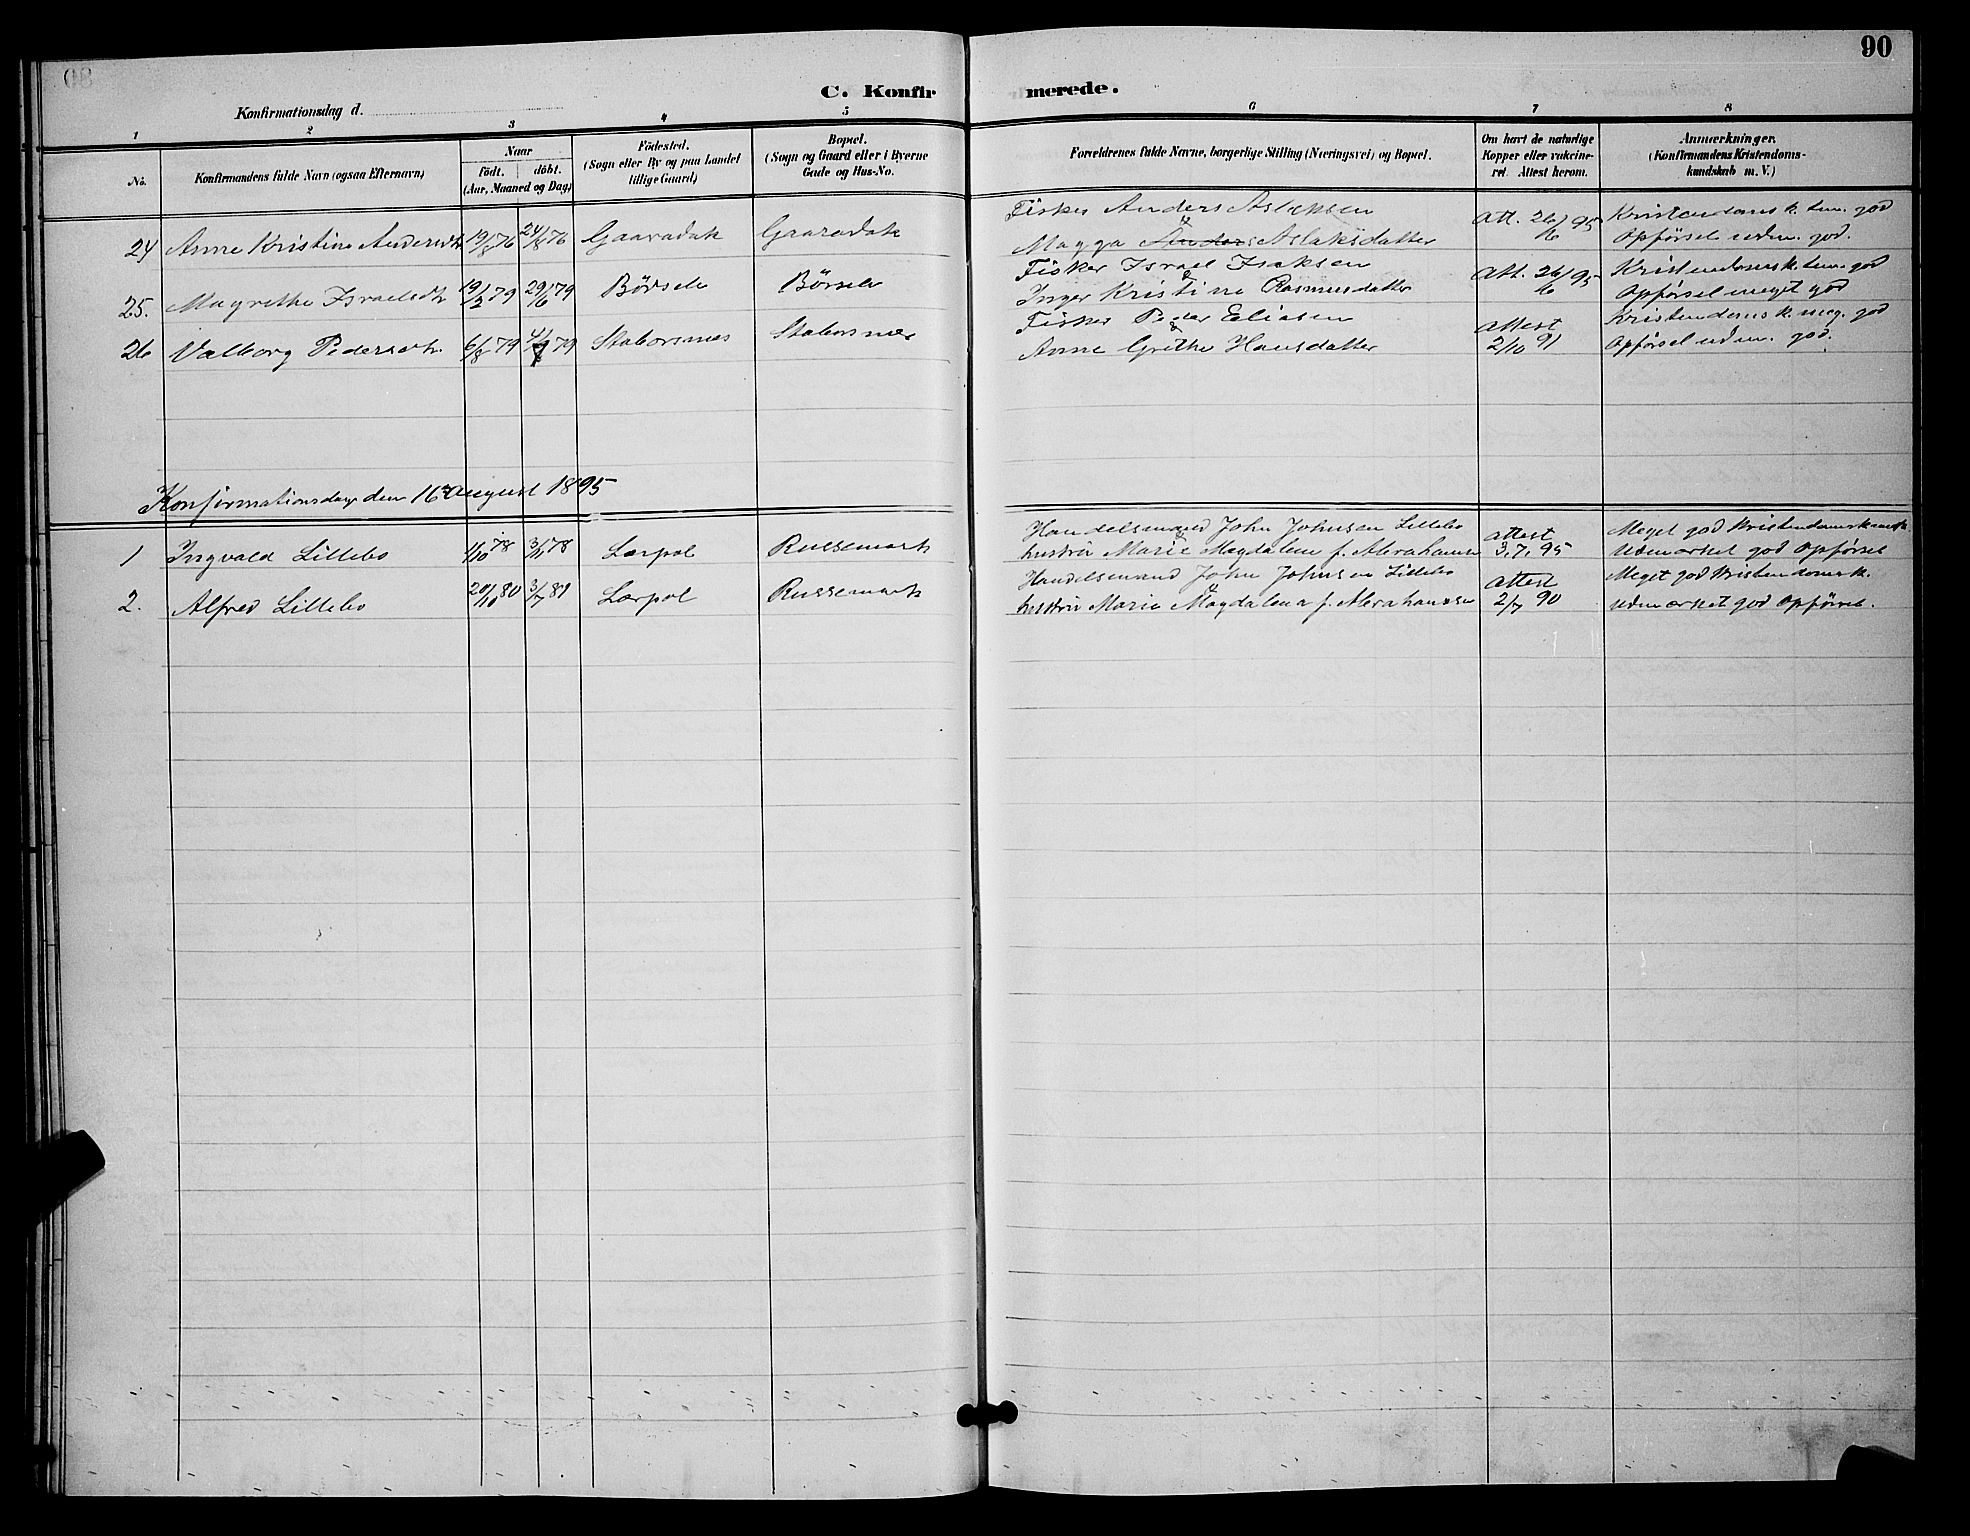 90
C. Konfirmerede.
Konfirmationsdag d.
1 2 3 4 5 6 7 8
No. Konfirmandens fulde Navn (ogsaa Efternavn) Naar födt. döbt. (Aar, Maaned og Dag) Födested. (Sogn eller By og paa Landet tillige Gaard) Bopæl. (Sogn og Gaard eller i Byerne Gade og Hus-No. Forældrenes fulde Navne, borgerlige Stilling (Næringsvei) og Bopæl. Om havt de naturlige Kopper eller vakcineret. Attest herom. Anmærkninger. (Konfirmandens Kristendomskundskab m. V.)
Fisker Anders Aslaksen Att. 26/6 95 Kristendomsk. tem. god
24 Anne Kristine Andersdtr 19/8 76 24/8 76 Gaaradak Gaaradak & Magga Anders Aslaksdatter Opførsel udm. god.
Fisker Israel Isaksen Att. 26/6 95 Kristendomsk. tem. god
25. Magrethe Israelsdtr 19/2 79 29/6 79 Börselv Börselv & Inger Kristine Rasmusdatter Opførsel meget god
Fisker Peder Eliasen attest Kristendomsk. meg. god
26 Valborg Pedersdtr. 6/8 79 79 Staborsnes Staborsnes & Anne Grethe Hansdatter 2/10 91 Opførsel udm. god.
Konfirmationsdag den 16de August 1895
Handelsmand John Johnsen Lillebo attest Meget god Kristendomskundsk.
1 Ingvald Lillebo 1/10 78 3/11 78 Lærpol Russemark & hustru Marie Magdalena f. Abrahamsen 3.7.95 Udmærket god Opførsel
Handelsmand John Johnsen Lillebo attest Meget god Kristendomsk.
2. Alfred Lillebo 20/10 80 3/7 81 Lærpol Russemark & hustru Marie Magdalena f. Abrahamsen 2/7 90 Udmærket god Opførsel.